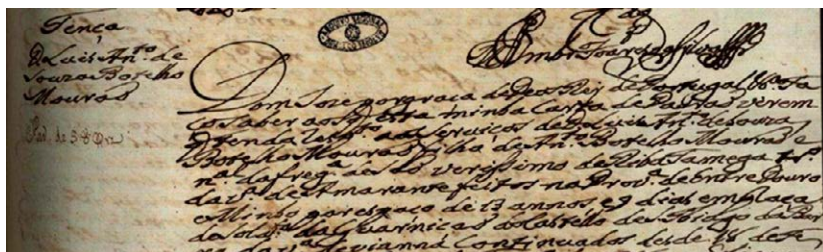 Tença
D. Luis Ant.º de
Souza Botelho
Mourão
Dom Joze por graça de Deos Rey de Portugal &ª. Fa
ço saber aos q̃ esta minha Carta de Padrão virem
q̃ tendo resp.to aos serviços de D. Luis Ant.º de Souza
Botelho Mourão filho de An.to Botelho Mourão e
n.al da freg.ª de S. Verissimo de Riba Tamega tr.º
da v.ª de Amarante feitos na Prov.ª de Entre Douro
e Minho por espaço de 13 annos e 9 dias em praça
de sold.º da Guarnição do Castello de S. Thiago da Bar
Vianna continuados desde 18 de